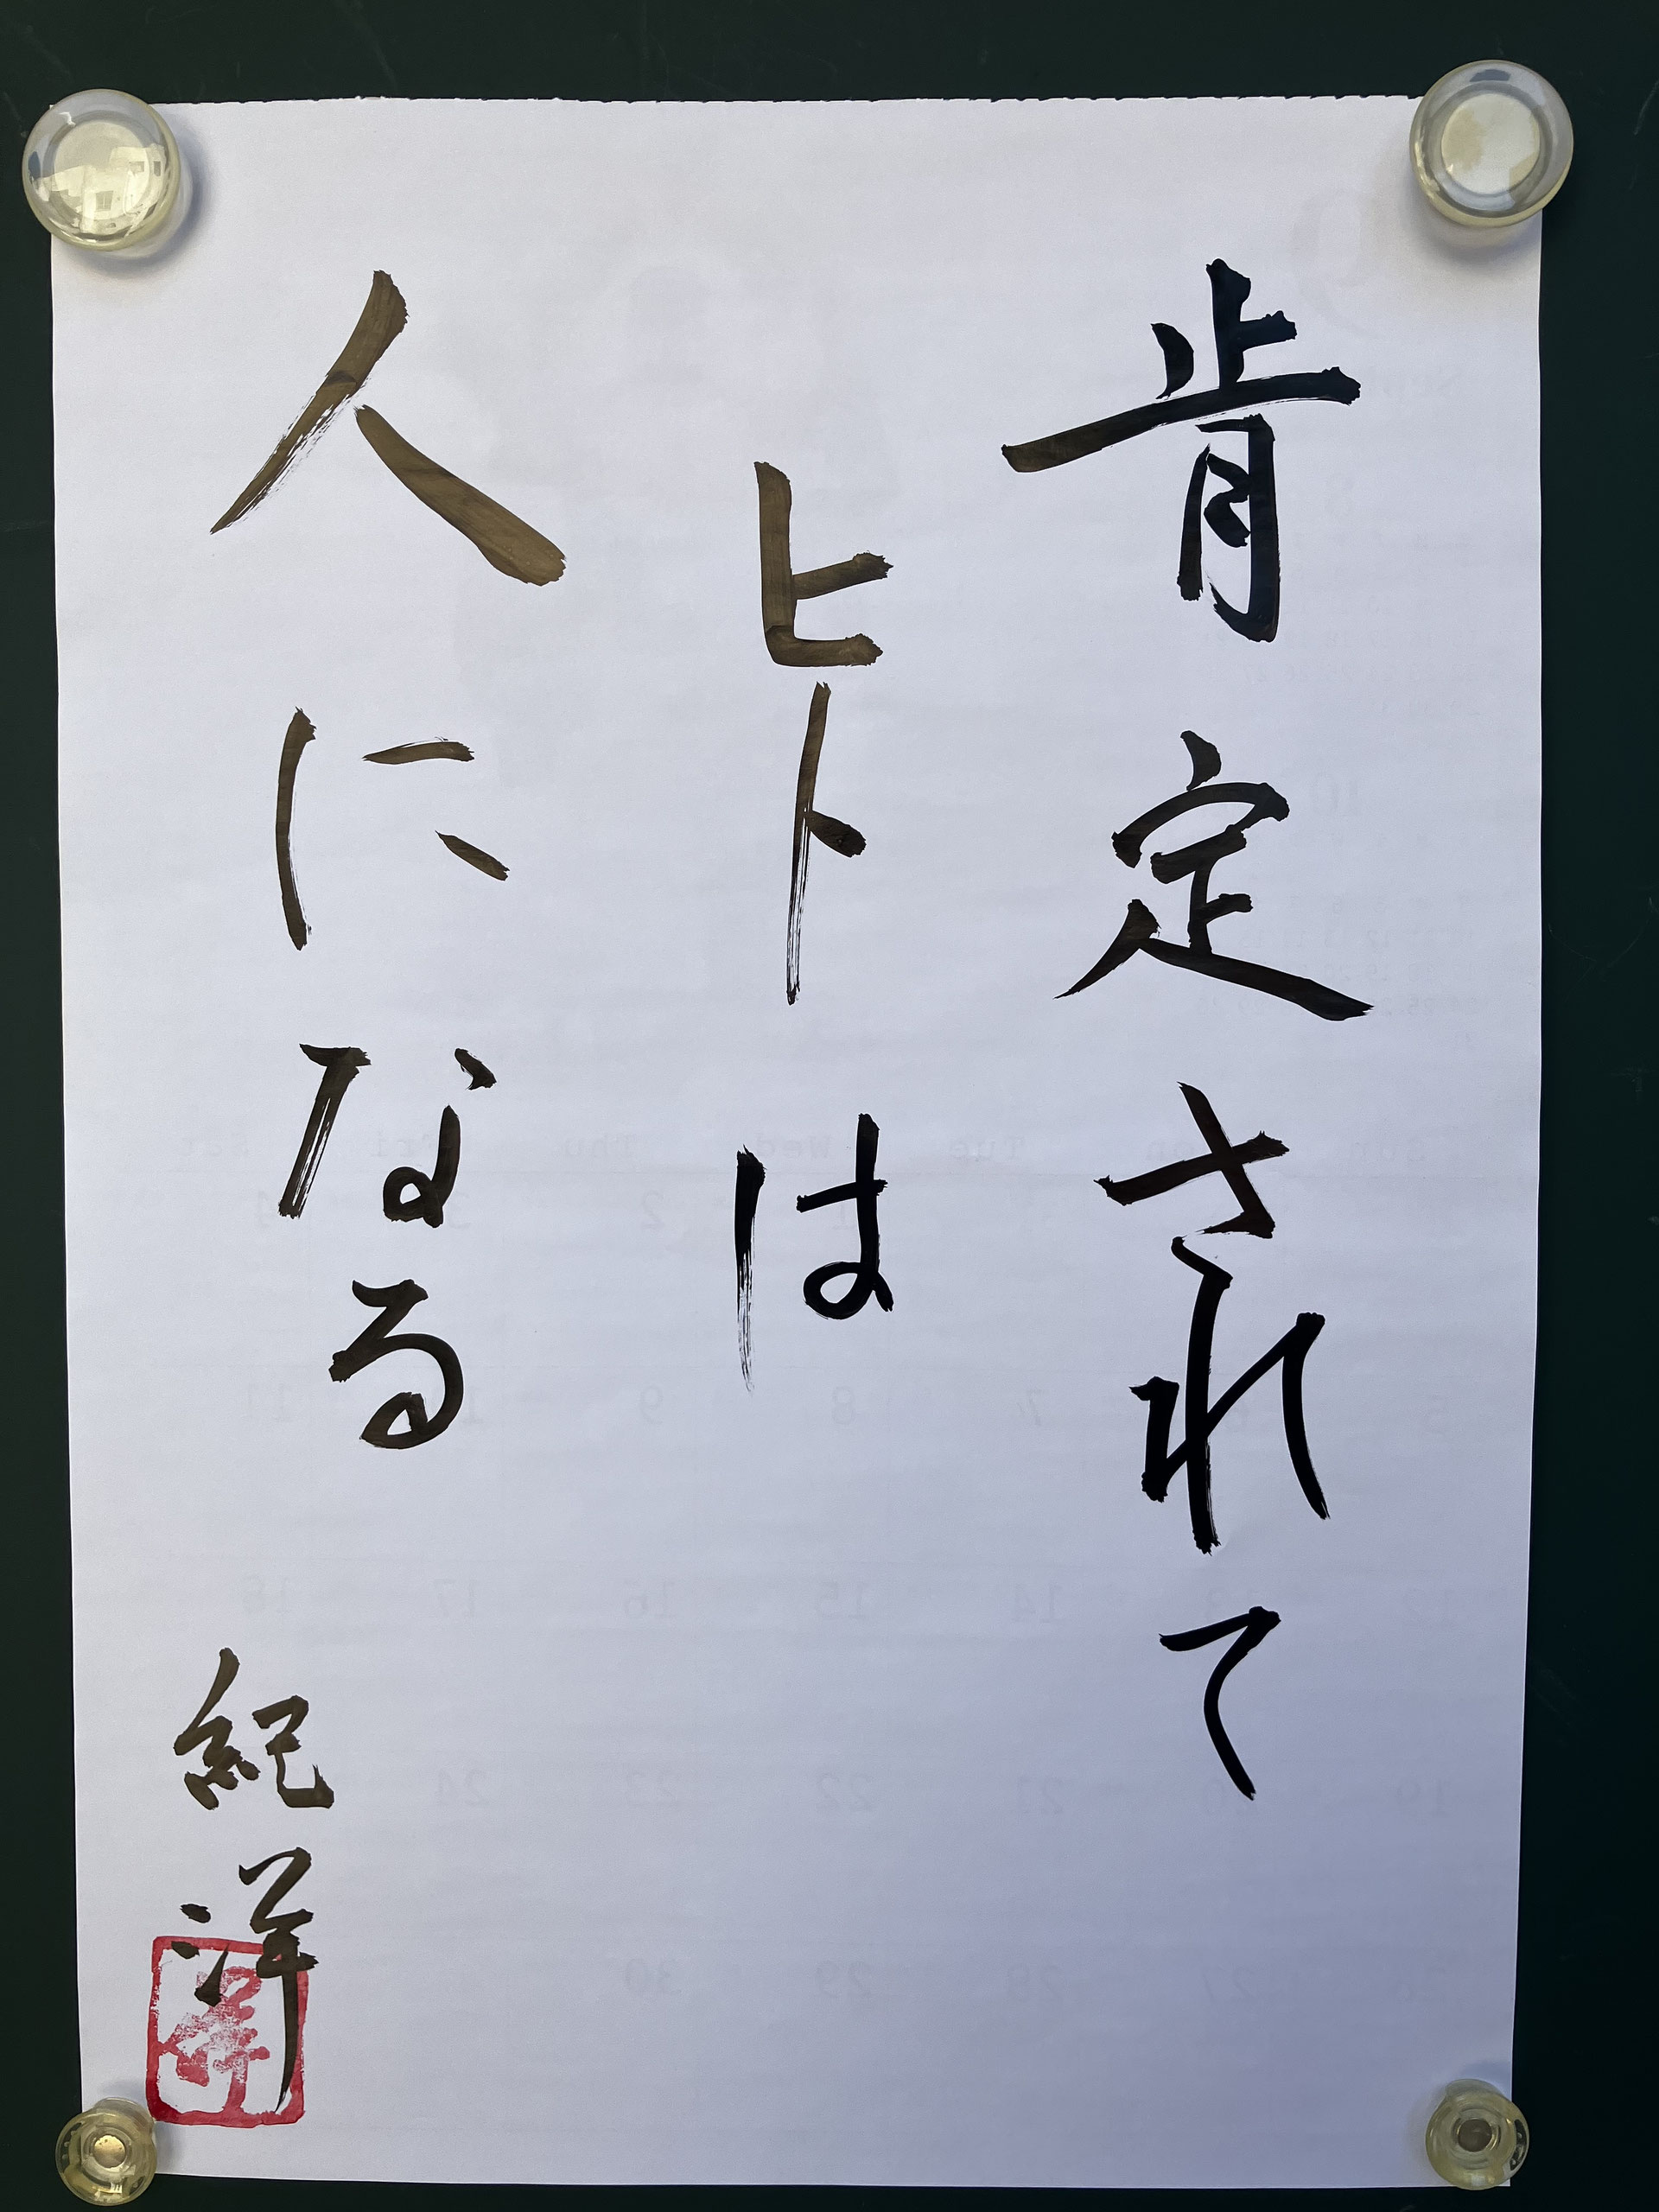 肯定されて
ヒトは
人になる
紀洋